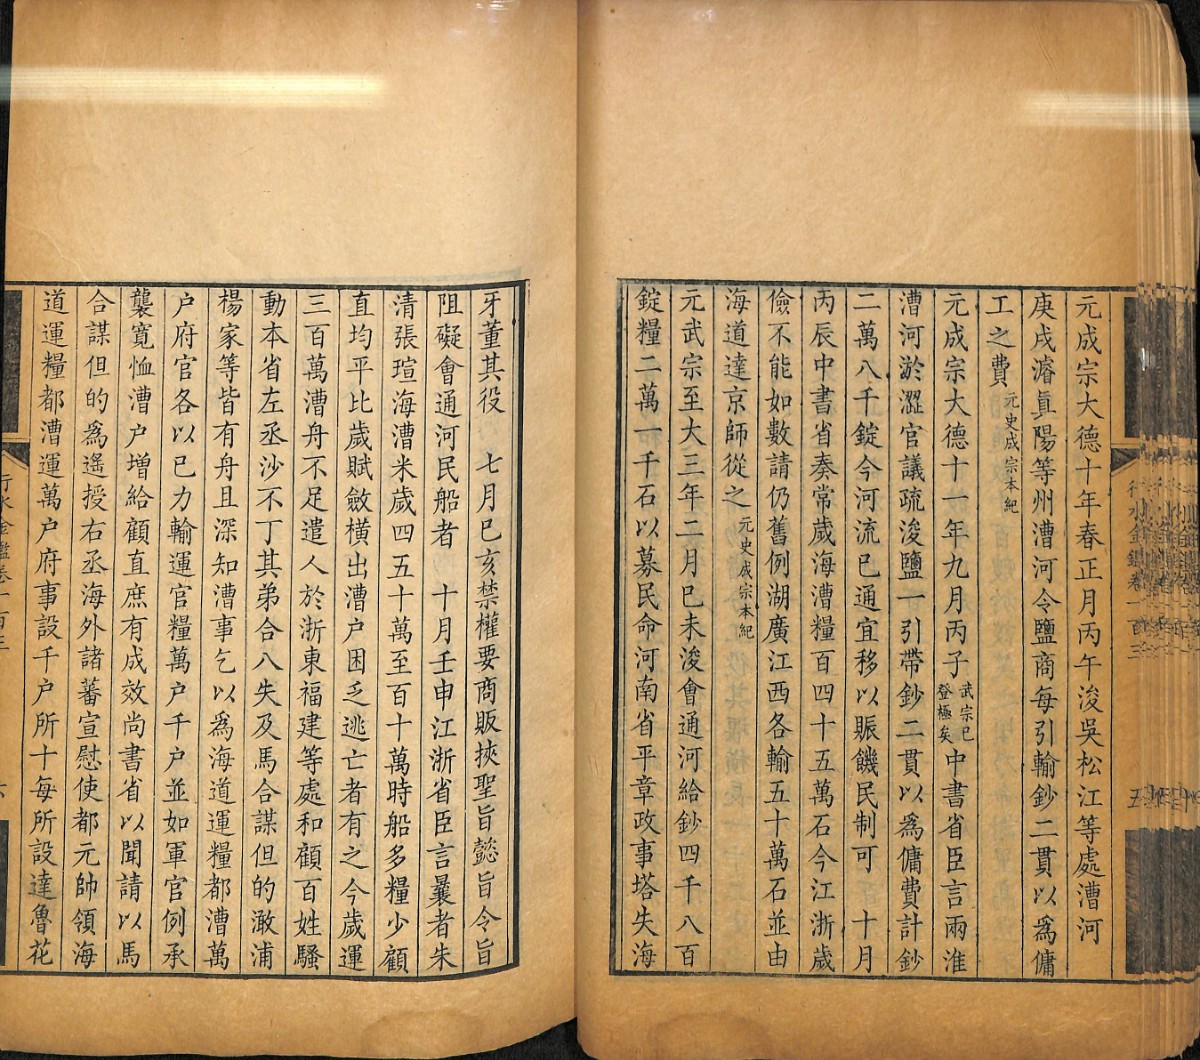 元成宗大德十年春正月丙午浚吳松江等處漕河
庚戌濬眞陽等州漕河令鹽商每引輸鈔二貫以爲傭
工之費元史成宗本紀
元成宗大德十一年九月丙子武宗已登極矣中書省臣言兩淮
漕河淤澀官議疏浚鹽一引帶鈔二貫以爲傭費計鈔
二萬八千錠今河流已通宜移以賑饑民制可　十月
丙辰中書省奏常歲海漕糧百四十五萬石今江浙歲
儉不能如數請仍舊例湖廣江西各輸五十萬石並由
海道達京師從之元史成宗本紀
元武宗至大三年二月巳未浚會通河給鈔四千八百
錠糧二萬一千石以募民命河南省平章政事塔失海
牙董其役　七月巳亥禁權要商販挾聖旨懿旨令旨
阻礙會通河民船者　十月壬申江浙省臣言曩者朱
清張瑄海漕米歲四五十萬至百十萬時船多糧少顧
直均平比歲賦斂橫出漕户困乏逃亡者有之今歲運
三百萬漕舟不足遣人於浙東福建等處和顧百姓騷
動本省左丞沙不丁其弟合八失及馬合謀但的澉浦
楊家等皆有舟且深知漕事乞以爲海道運糧都漕萬
户府官各以已力輸運官糧萬户千户並如軍官例承
襲寬恤漕户增給顧直庶有成效尚書省以聞請以馬
合謀但的爲遙授右丞海外諸蕃宣慰使都元帥領海
道運糧都漕運萬户府事設千户所十每所設達魯花
行水金鑑卷一百三
五
行水金鑑卷一百三
六